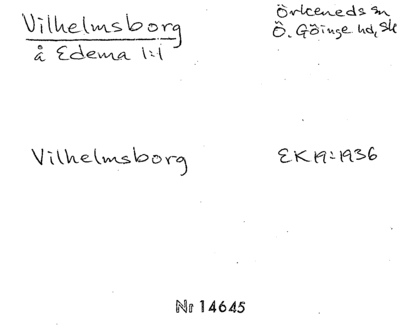 Vilhelmsborg
å Edema 1:1
Örkeneds sn
Ö. Göinge hd, Sk
Vilhelmsborg
EK19:1936
Nr 14645